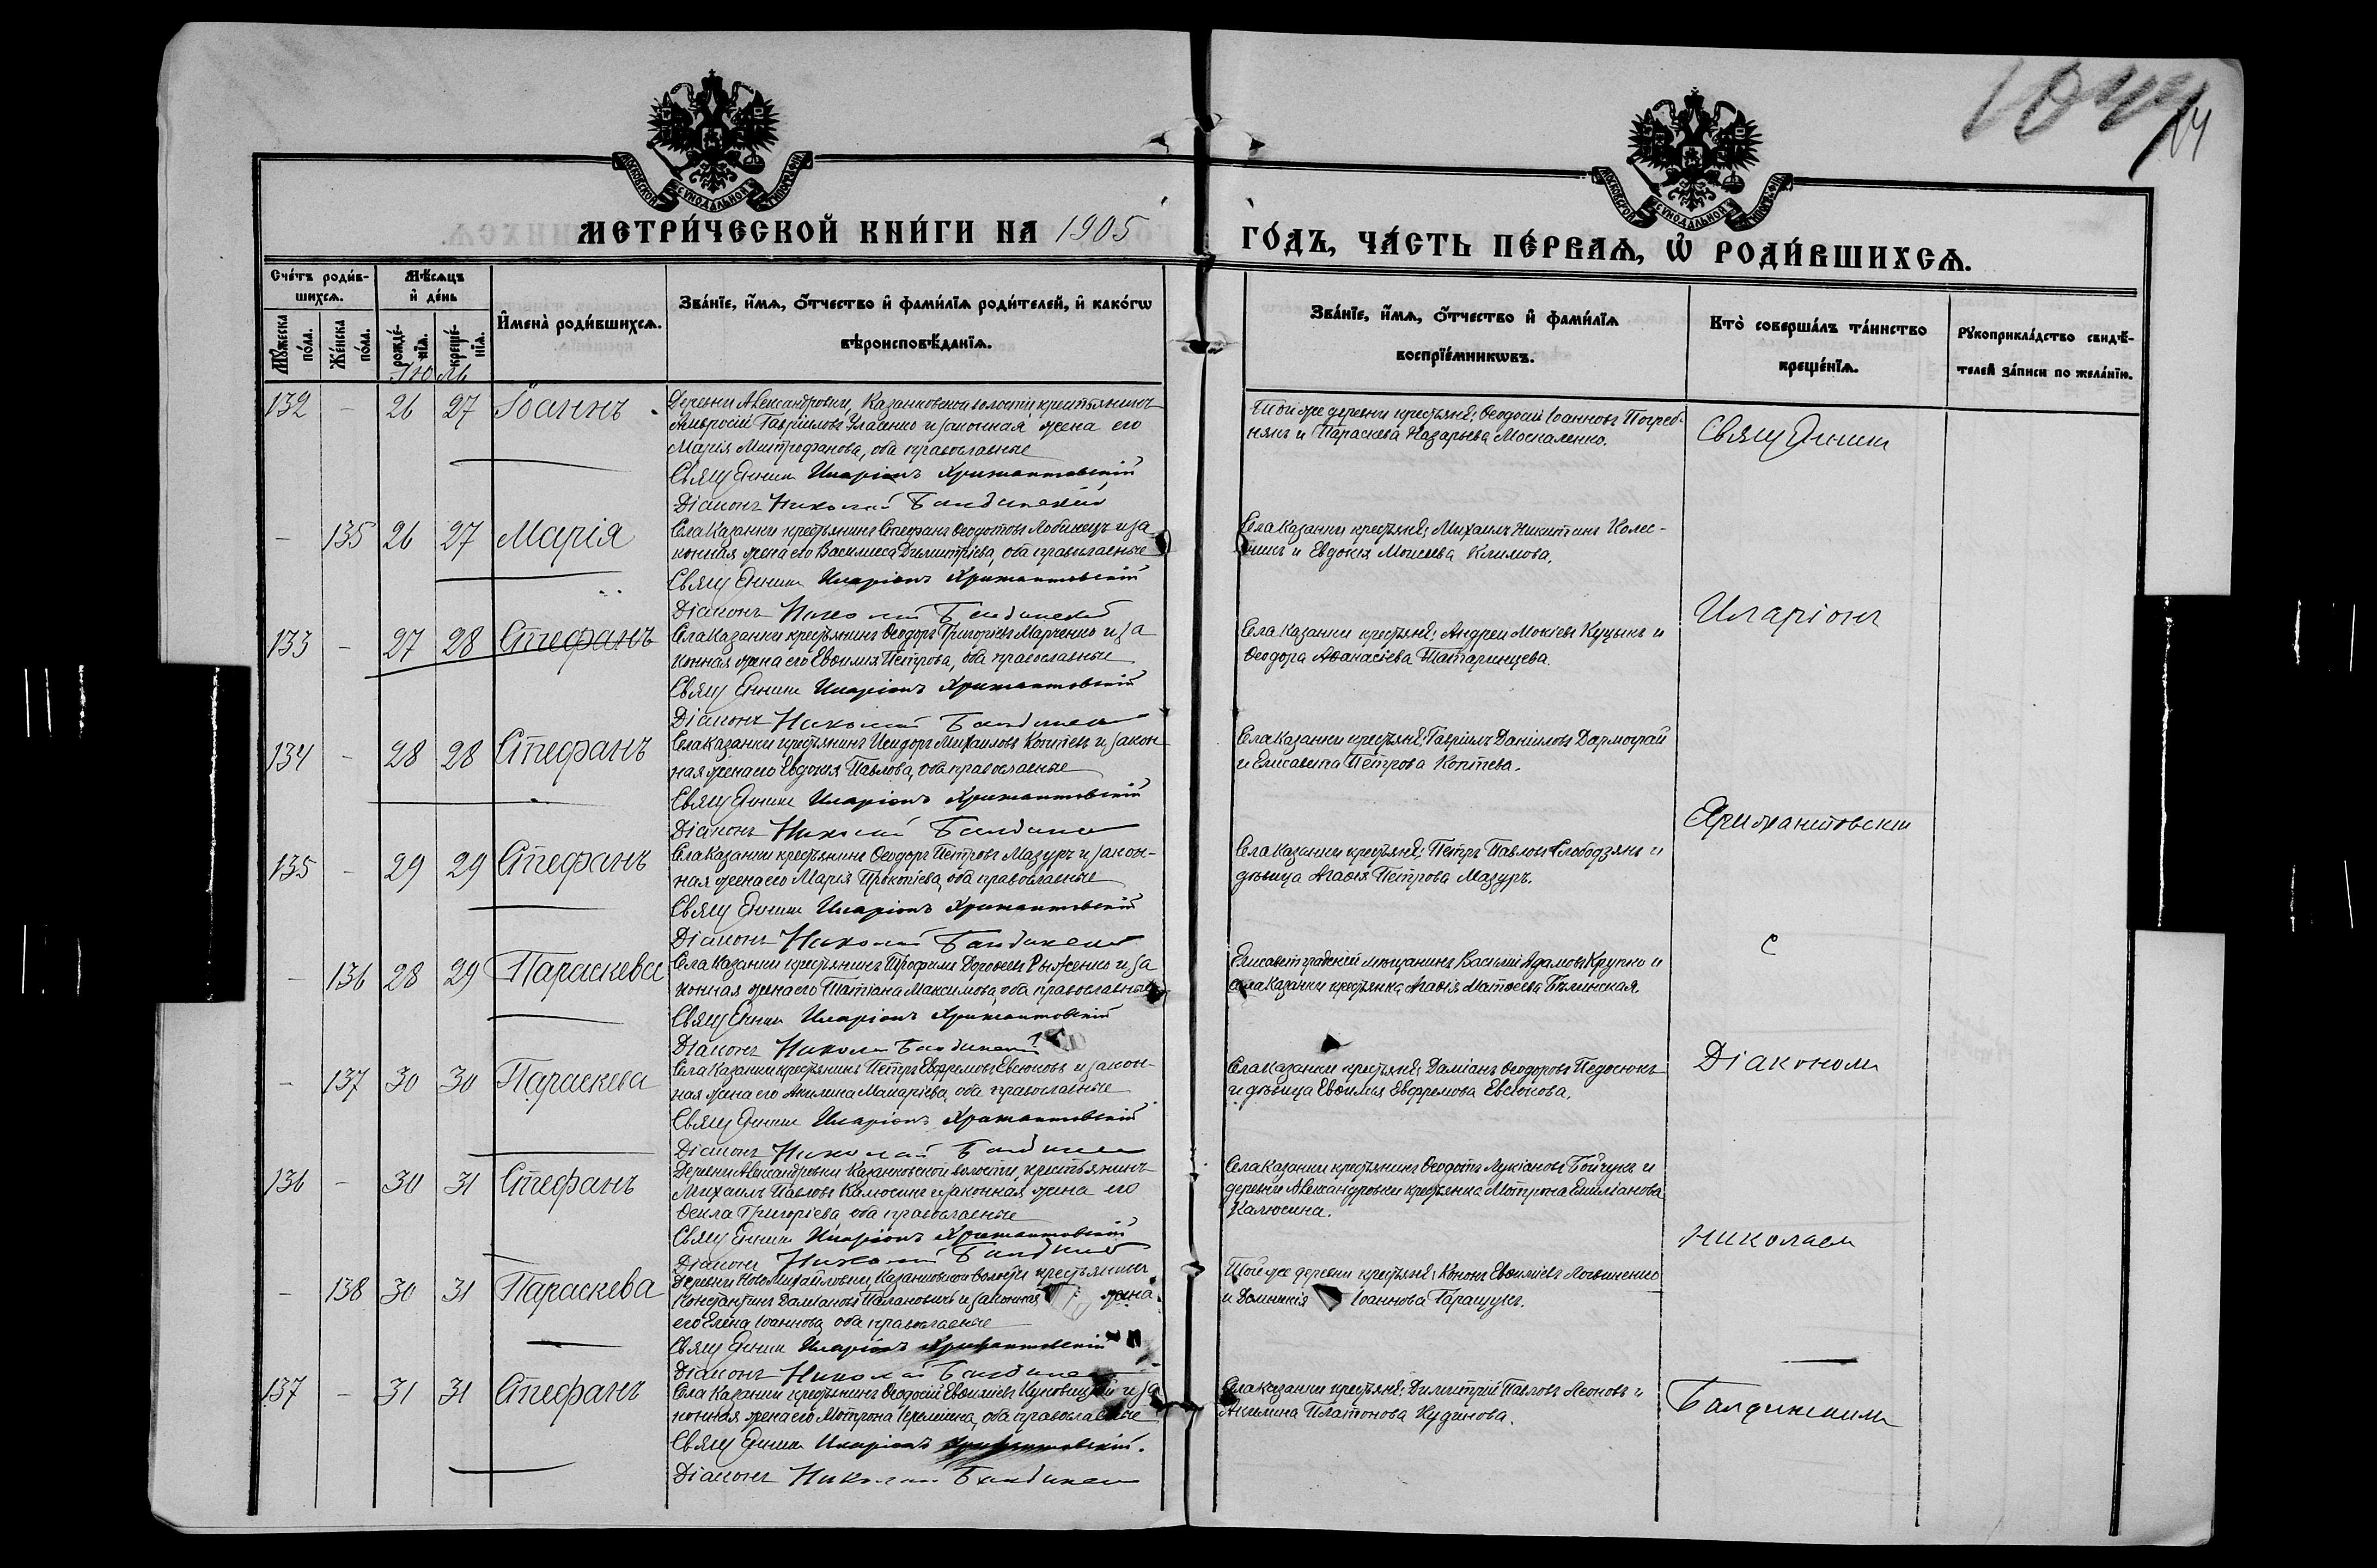 1044
14
МОСКОВСКОЙ СѴНОДАЛЬНОЙ ТИПОГРАФІИ
МОСКОВСКОЙ СѴНОДАЛЬНОЙ ТИПОГРАФІИ
МЕТРИ́ЧЕСКОЙ КНИ́ГИ НА 1905
ГО́ДЪ, ЧА́СТЬ ПЕ́РВАѦ, Ѽ РОДИ́ВШИХСѦ.
Сче́тъ роди́в-
шихсѧ.
Мѣ́сѧцъ
и҆ де́нь
Мꙋ́жеска по́ла.
Же́нска по́ла.
рожде́-нїѧ.
креще́-нїѧ.
И҆мена̀ роди́вшихсѧ.
Зва́нїе, и҆́мѧ, ѻ҆́тчество и҆ фами́лїѧ роди́телей, и҆ како́гѡ
вѣроисповѣ́данїѧ.
Зва́нїе, и҆́мѧ, ѻ҆́тчество и҆ фами́лїѧ
воспрїе́мникѡвъ.
Кто̀ соверша́лъ та́инство
креще́нїѧ.
Рꙋкоприкла́дство свидѣ́-
телей за́писи по жела́нїю.
Іюль
132 - 26 27 Іоаннъ
Деревни Александровки, Казанковской волости крестьянинъ
Амвросій Гавріиловъ Власенко и законная жена его
Марія Митрофанова, оба православные
Священникъ Иларіонъ Хрисанфовскій
Діаконъ Николай Балдинскій
Той же деревни крестьяне: Ѳеодосій Іоанновъ Погреб-
някъ и Параскева Назарьева Москаленко.
Священникъ
- 135 26 27 Марія
Села Казанки крестьянинъ Стефанъ Ѳеодотовъ Лобинецъ и за
конная жена его Василиса Димитріева, оба православные
Священникъ Иларіонъ
Діаконъ Николай
Села Казанки крестьяне: Михаилъ Никитинъ Колес-
никъ и Евдокія Моисеева Климова.
Иларіонъ
133 - 27 28 Стефанъ
Села Казанки крестьянинъ Ѳеодоръ Григорьевъ Марченко и за
конная жена его Евѳимія Петрова, оба православные
Священникъ Иларіонъ
Діаконъ Николай
Села Казанки крестьяне: Андрей Мокіевъ Куцынъ и
Ѳеодора Аѳанасіева Татаринцева.
134 - 28 28 Стефанъ
Села Казанки крестьянинъ Исидоръ Михаиловъ Коптевъ и закон
ная жена его Евдокія Павлова, оба православные
Священникъ Иларіонъ
Діаконъ Николай
Села Казанки крестьяне: Гавріилъ Даніиловъ Дармограй
и Елисавета Петрова Коптева.
135 - 29 29 Стефанъ
Села Казанки крестьянинъ Ѳеодоръ Петровъ Мазуръ и закон-
ная жена его Марія Прокопіева, оба православные
Священникъ Иларіонъ
Діаконъ Николай
Села Казанки крестьяне: Петръ Павловъ Слободзянъ и
дѣвица Агаѳія Петрова Мазуръ.
съ
- 136 28 29 Параскева
Села Казанки крестьянинъ Трофимъ Дороѳеевъ Рыженко и за
конная жена его Татіана Максимова, оба православные
Священникъ Иларіонъ
Діаконъ Николай
Елисаветградскій мѣщанинъ Василій Адамовъ Крупко и
села Казанки крестьянка Агаѳія Матѳеева Бѣлинская.
Діакономъ
- 137 30 30 Параскева
Села Казанки крестьянинъ Петръ Евфремовъ Евсюковъ и закон-
ная жена его Акилина Макаріева, оба православные
Священникъ Иларіонъ
Діаконъ Николай
Села Казанки крестьяне: Даміанъ Ѳеодоровъ Педосюкъ
и дѣвица Евѳимія Евфремова Евсюкова.
136 - 30 31 Стефанъ
Деревни Александровки Казанковской волости, крестьянинъ
Михаилъ Павловъ Калюсинъ и законная жена его
Ѳекла Григоріева оба православные
Священникъ Иларіонъ
Діаконъ Николай
Села Казанки крестьянинъ Ѳеодотъ Лукіановъ Бойчукъ и
деревни Александровки крестьянка Мотрона Емиліанова
Калюсина.
Николаемъ
- 138 30 31 Параскева
Деревни Новомихайловки, Казанковской волости крестьянинъ
Константинъ Даміановъ Палановичъ и законная жена
его Елена Іоаннова оба православные
Священникъ Иларіонъ
Діаконъ Николай
Той же деревни крестьяне: Кононъ Евѳиміевъ Логвиненко
и Домникія Іоаннова Гаращукъ.
137 - 31 31 Стефанъ
Села Казанки крестьянинъ Ѳеодосій Евѳиміевъ и за
конная жена его Мотрона Іереміина, оба православные
Священникъ Иларіонъ
Діаконъ Николай
Села Казанки крестьяне: Димитрій Павловъ Леоновъ и
Акилина Платонова Кудинова.
Балдинскимъ